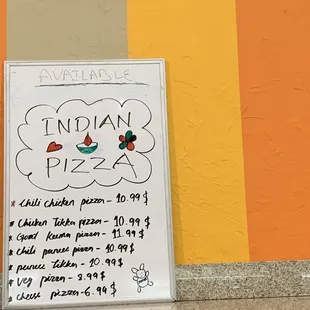 AVAILABLE
INDIAN
PIZZA
* Chili chicken pizza - 10.99 $
* Chicken Tikka pizza - 10.99 $
* Goat Keema pizza - 11.99 $
* Chili paneer pizza - 10.99 $
* paneer Tikka - 10.99 $
* Veg pizza - 8.99 $
* Cheese pizza - 6.99 $